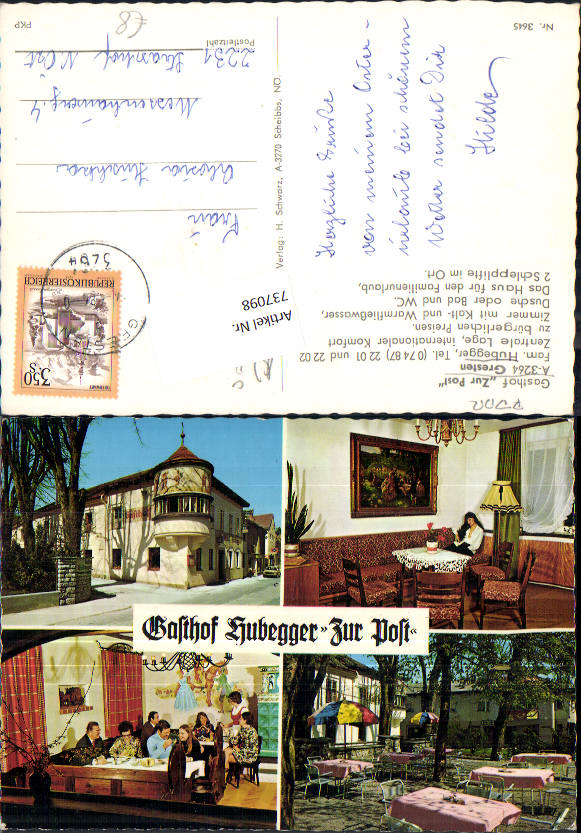 Nr. 3645
PKP
€8
Herzliche Grüße
von meinem Oster-
urlaub bei schönem
Wetter sendet Dir
Hilde
Frau
Aloisia
2231
Postleitzahl
Verlag: H. Schwarz, A-3270 Scheibbs, NÖ.
REPUBLIK ÖSTERREICH
3.50
S
Gasthof "Zur Post"
A-3264 Gresten
Fam. Hubegger, Tel. (0 74 87) 22 01 und 22 02
Zentrale Lage, internationaler Komfort
zu bürgerlichen Preisen.
Zimmer mit Kalt- und Warmfließwasser,
Dusche oder Bad und WC.
Das Haus für den Familienurlaub,
2 Schlepplifte im Ort.
Artikel Nr.
737098
Gasthof Hubegger »Zur Post«